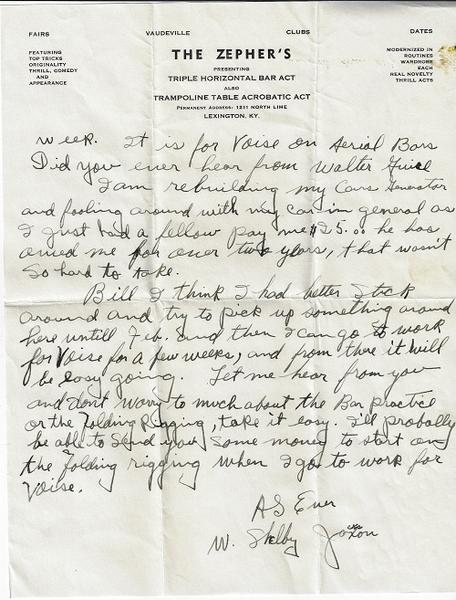 FAIRS VAUDEVILLE CLUBS DATES
THE ZEPHER'S
FEATURING
TOP TRICKS
ORIGINALITY
THRILL, COMEDY
AND
APPEARANCE
PRESENTING
TRIPLE HORIZONTAL BAR ACT
ALSO
TRAMPOLINE TABLE ACROBATIC ACT
PERMANENT ADDRESS: 1211 NORTH LIME
LEXINGTON, KY.
MODERNIZED IN
ROUTINES
WARDROBE
EACH
REAL NOVELTY
THRILL ACTS
week. It is for Voise on Aerial Bars
Did you ever hear from Walter
I am rebuilding my Cars Generator
and fooling around with my car in general as
I just had a fellow pay me $25.00 he has
owed me for over two years, that wasn't
So hard to take.
Bill I think I had better Stick
around and try to pick up something around
here untill Feb. and then I can go to work
for Voise for a few weeks, and from there it will
be easy going. Let me hear from you
and dont worry to much about the Bar practice
or the Folding Rigging, take it easy. I'll probally
be able to Send you Some money to start on
the Folding rigging when I go to work for
Voise.
AS Ever
W. Shelby Jaxon